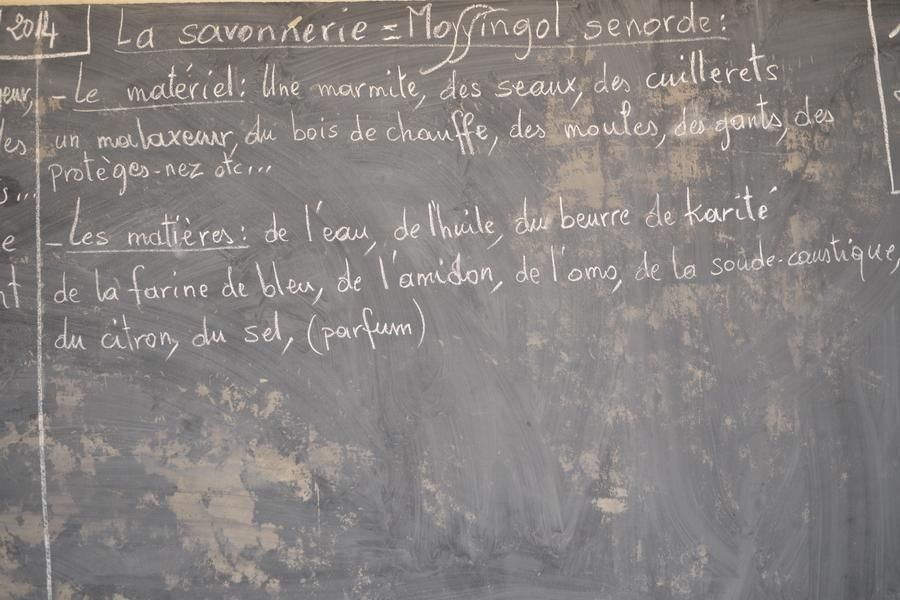 2014
La savonnerie = Moffingol senorde:
geur, - Le matériel: Une marmite, des seaux, des cuillerets
les un malaxeur, du bois de chauffe, des moules, des gants, des
s... Protèges-nez etc...
e - Les matières: de l'eau, de l'huile, du beurre de karité
nt de la farine de bleu, de l'amidon, de l'omo, de la soude-caustique,
du citron, du sel, (parfum)